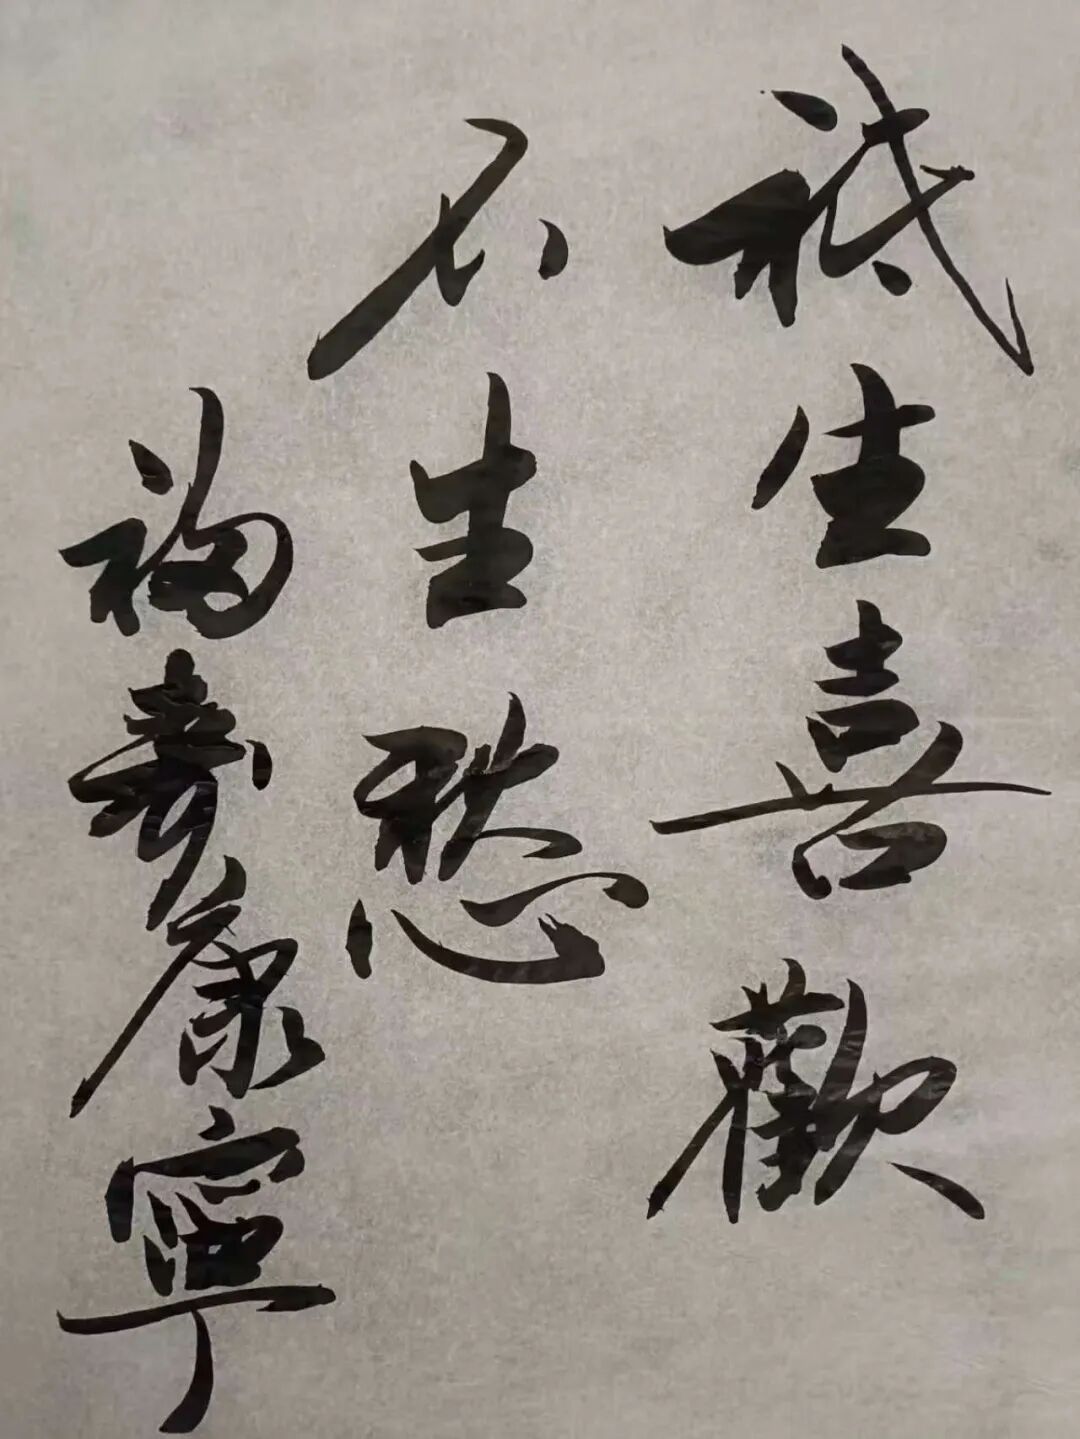 祗生喜歡
不生愁
福壽康寧